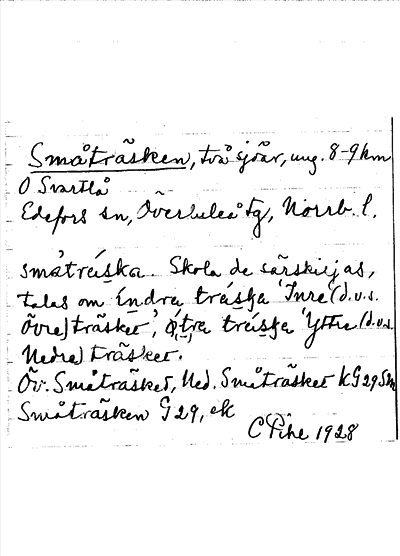 Småträsken, två sjöar, ung. 8-9 km
O Svartlå
Edefors sn, Överluleå tg, Norrb. l.
småträiska. Skola de särskiljas,
talas om índra träiska 'Inre (d.v.s.
Övre) träsket', ýtra träiska 'Yttre (d.v.s.
Nedre) träsket.
Öv. Småträsket, Ned. Småträsket KG29Sm
Småträsken G29, ek
C Pihl 1928